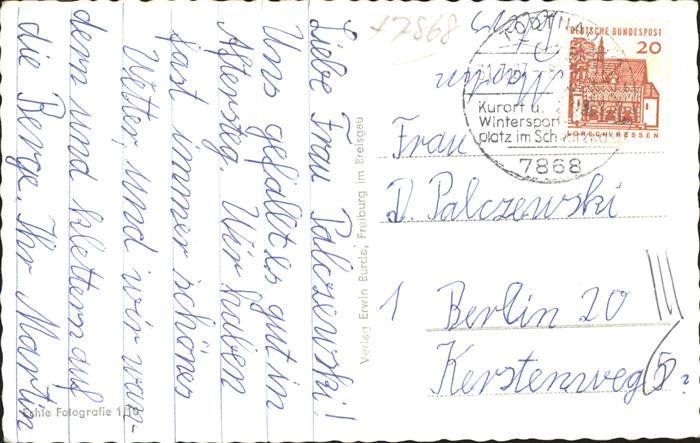 Liebe Frau Palczewski!
Uns gefällt es gut in
Aftersteg. Wir haben
fast immer schönes
Wetter, und wir wan-
dern und klettern auf
die Berge. Ihr Martin
Echte Fotografie 1/10
Verlag Erwin Burda, Freiburg im Breisgau
x7868
DEUTSCHE BUNDESPOST
20
LORSCH/HESSEN
Kurort u.
Wintersport
platz im Sch
7868
Frau
D. Palczewski
1 Berlin 20
Kerstenweg 5 ?